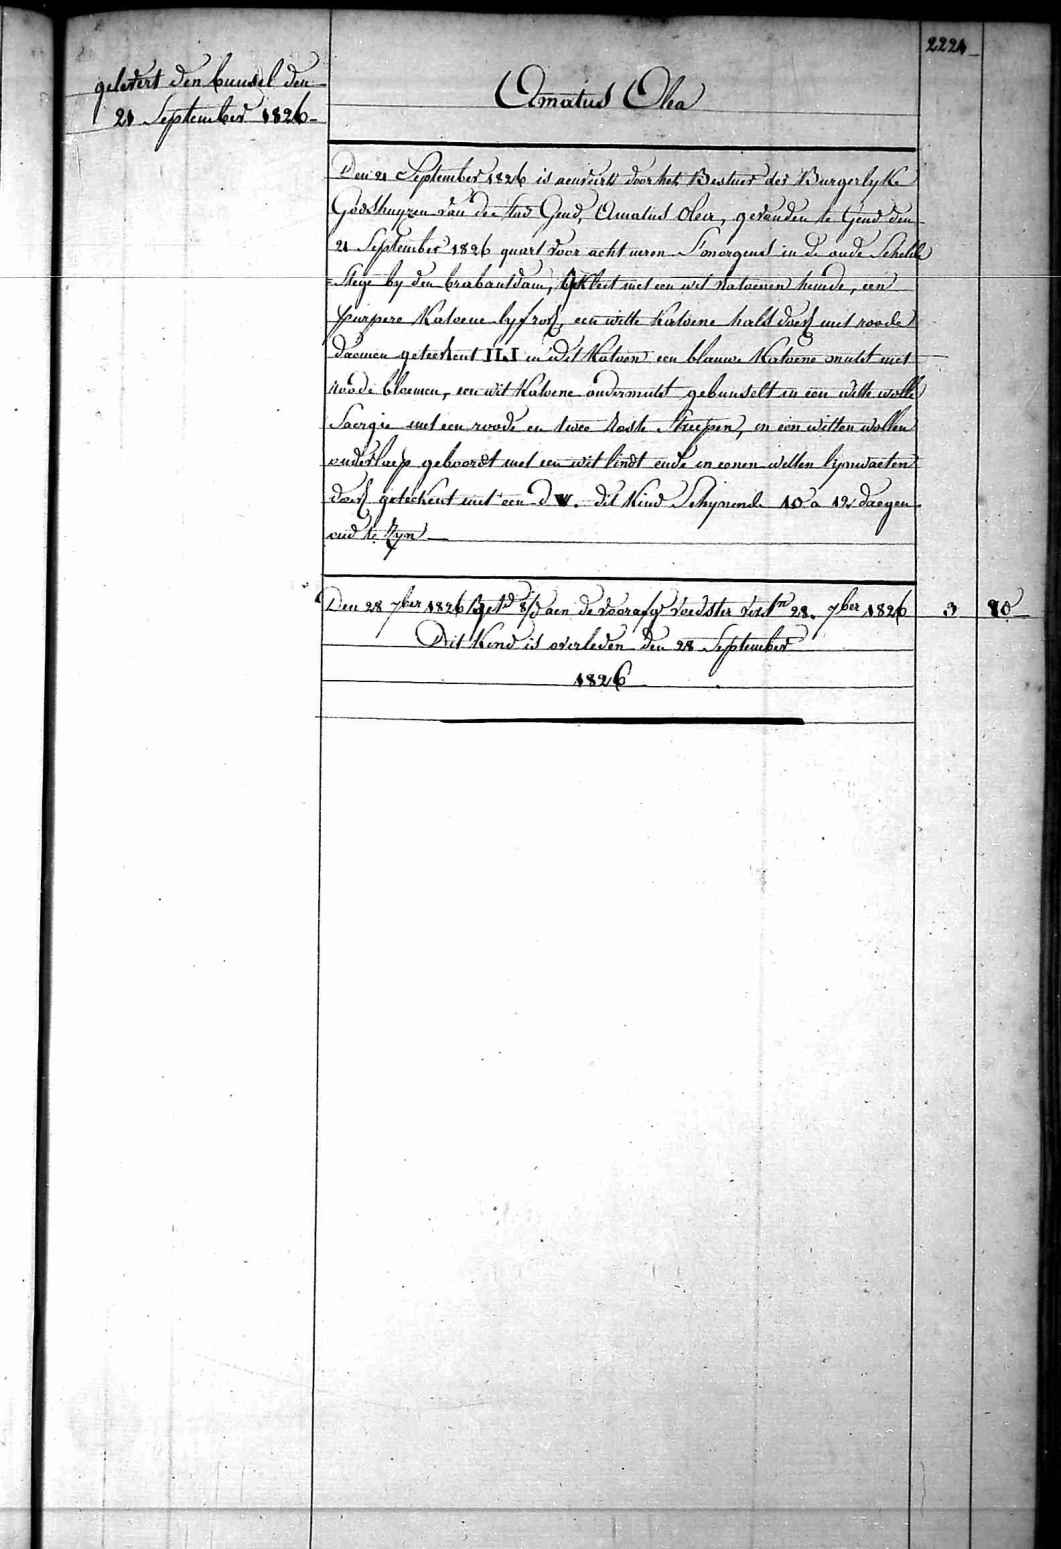 2224
gelevert den bunsel den
21 September 1826
Amatus Olea
Den 21 September 1826 is aenveird door het Bestuer der Burgerlyke
Godshuyzen van de stad Gend, Amatus Olea, gevonden te Gend den
21 September 1826 quart voor acht uren S'morgens in de oude Schelde
Stege by den brabantdam, gekleet met een wit katoenen hemde, een
purpere Katoene lyfrok, een witte Katoene hals doek met roode
daemen geteekent ILI in wit Katoen een blauwe Katoene muts met
roode bloemen, een wit Katoene ondermuts gebunselt in een witte wolle
Saergie met een roode en twee roste Streepen, in een witten wollen
onderslaep geboordt met een wit lindt ende in eenen witten lynwaeten
doek geteekent met een d W. dit Kind Schynende 10 a 12 daegen
oud te Zyn
Den 28 7ber 1826 Bet.d aen de voorafg voedster 28. 7ber 1826 3 80
Dit Kind is overleden den 28 September
1826